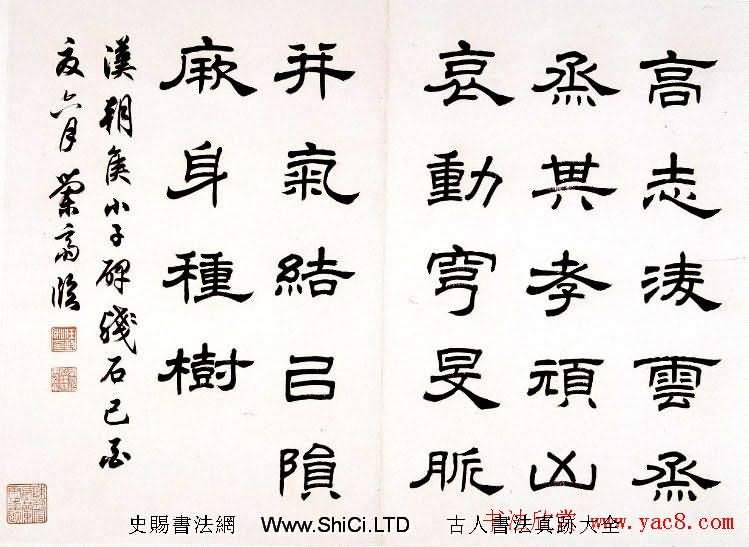 高志凌雲烝
烝其孝頑凶
哀動穹旻脈
并氣結以隕
厥身種樹
漢朝侯小子碑殘石己酉
夜六月蘭高臨
史賜書法網 Www.ShiCi.LTD 古人書法真跡大全
书法欣赏 www.yac8.com